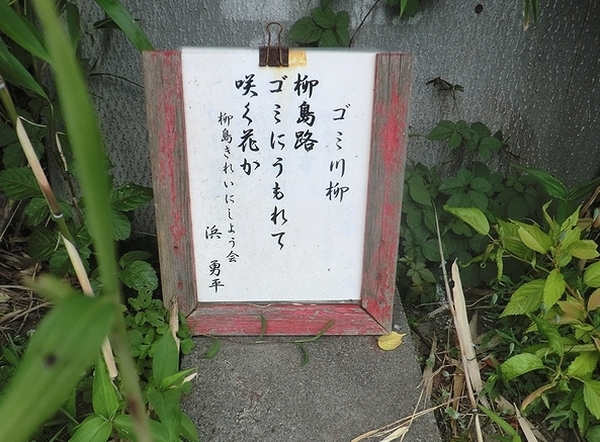 ゴミ川柳
柳島路
ゴミにうもれて
咲く花か
柳島きれいにしよう会
浜 勇平